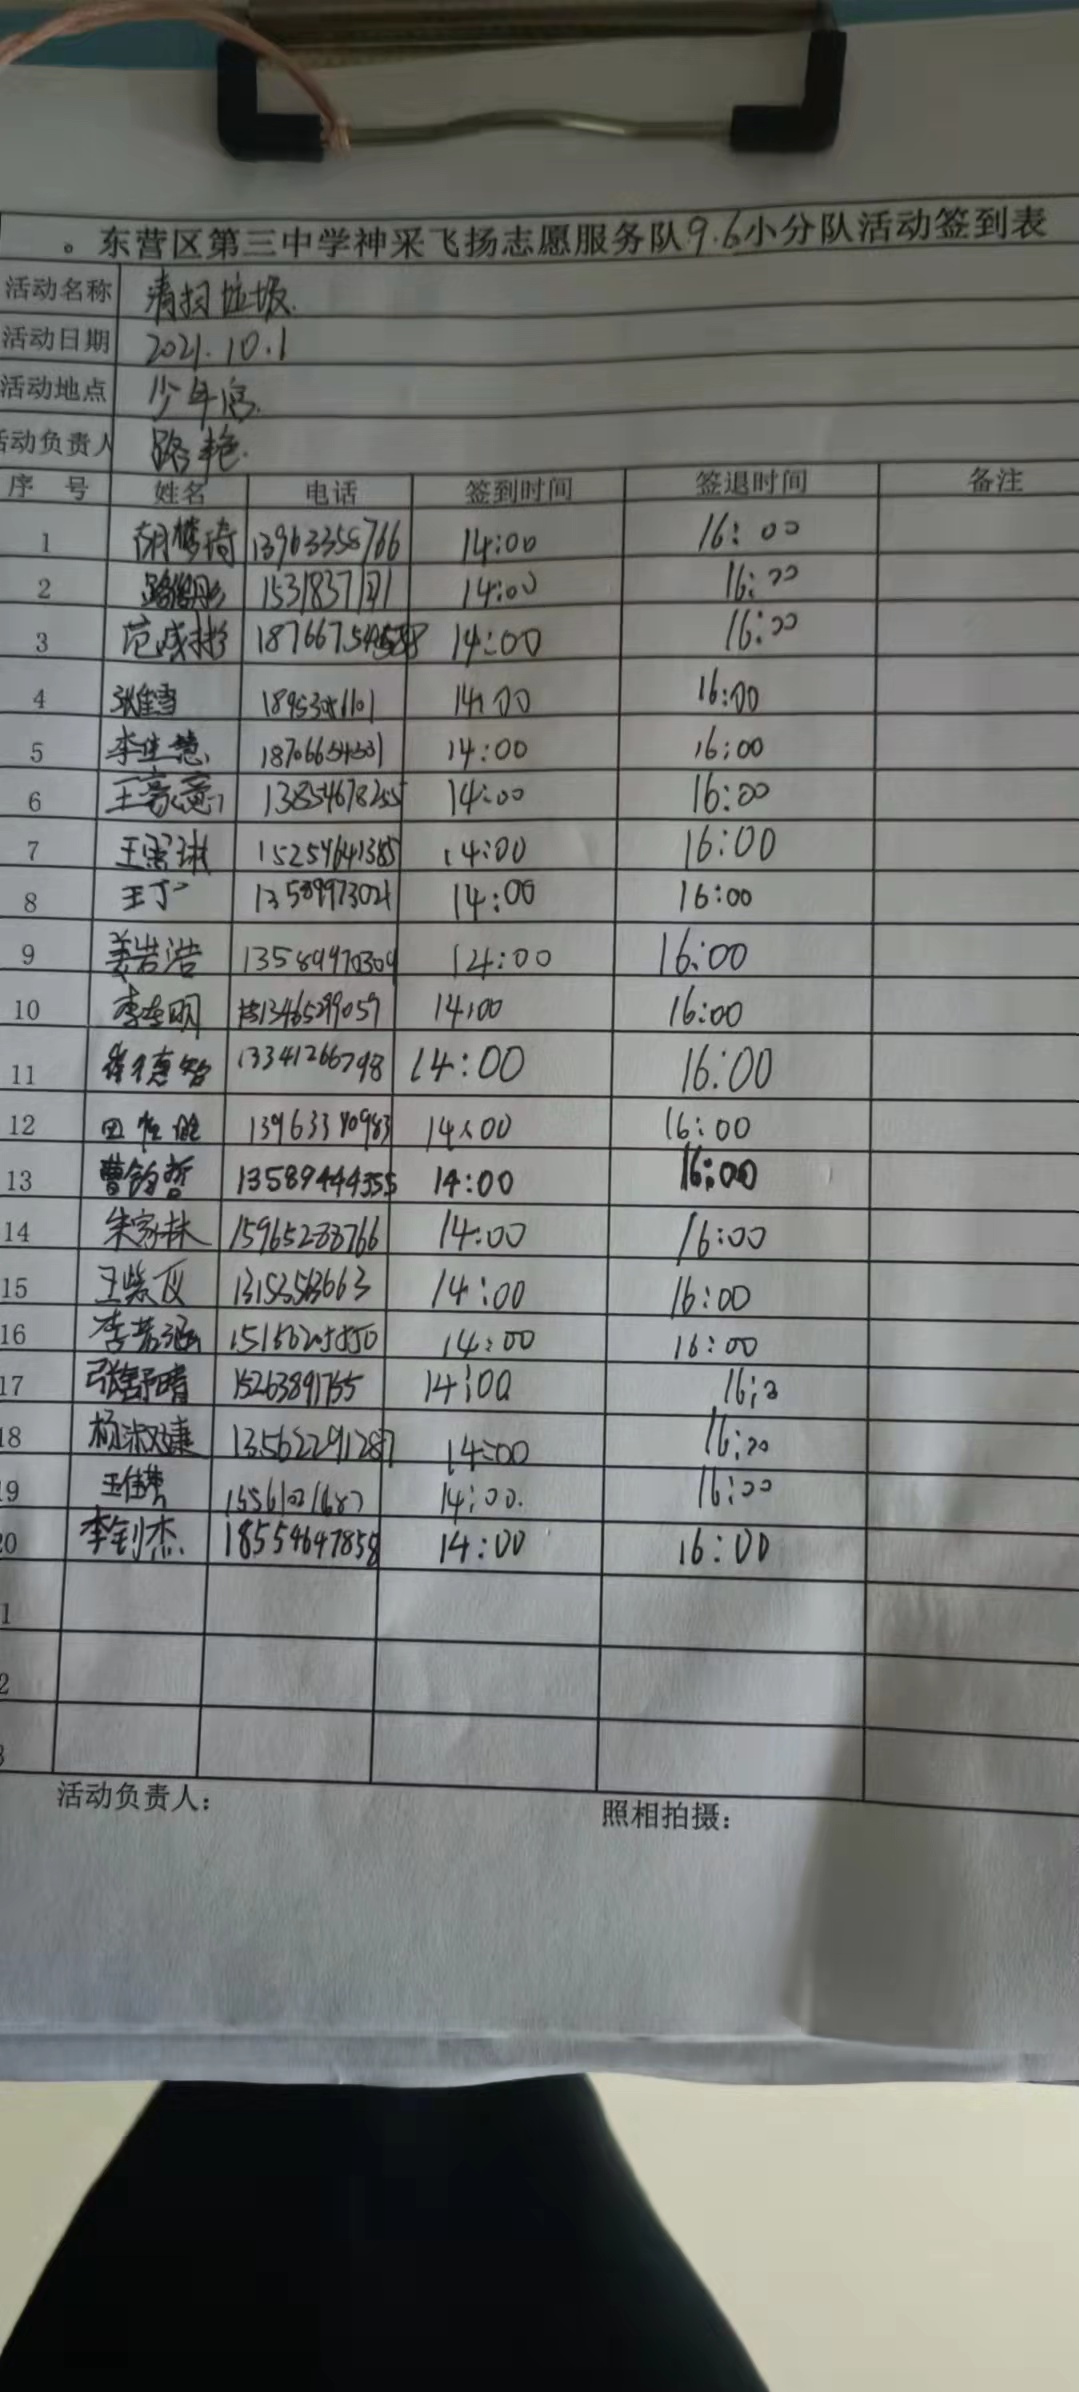 。东营区第三中学神采飞扬志愿服务队9.6小分队活动签到表
活动名称 清扫垃圾.
活动日期 2021.10.1
活动地点 少年宫.
活动负责人 路艳.
序 号 姓名 电话 签到时间 签退时间 备注
1 胡楚琦 13963358766 14:00 16:00
2 14:00 16:00
3 14:00 16:00
4 张雪 14:00 16:00
5 李佳慧 14:00 16:00
6 王豪意 13854678255 14:00 16:00
7 王露琪 15254641385 14:00 16:00
8 王丁 13589973021 14:00 16:00
9 姜岩浩 13589970309 14:00 16:00
10 李奎明 13465299059 14:00 16:00
11 崔德智 13341266798 14:00 16:00
12 田 13963340983 14:00 16:00
13 曹钧哲 13589444355 14:00 16:00
14 朱家林 15965288766 14:00 16:00
15 王紫仪 14:00 16:00
16 李若涵 14:00 16:00
17 张舒晴 15263891755 14:00 16:
18 杨淑康 13562291287 14:00 16:00
19 王佳 14:00. 16:00
20 李钊杰 18554647858 14:00 16:00
1
2
3
活动负责人: 照相拍摄: